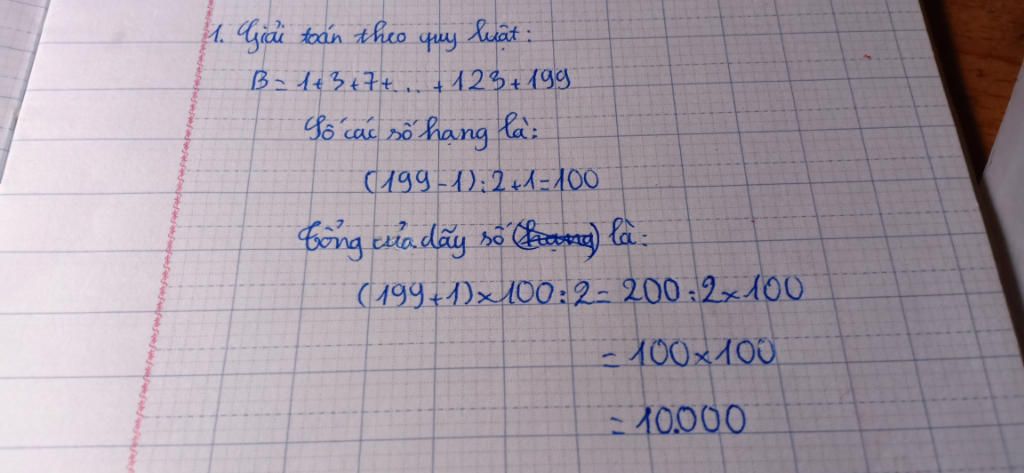 1. Giải toán theo quy luật:
B = 1+3+7+...+123+199
Số các số hạng là:
(199-1):2+1=100
Tổng của dãy số (hạng) là:
(199+1)×100:2=200:2×100
=100×100
=10.000